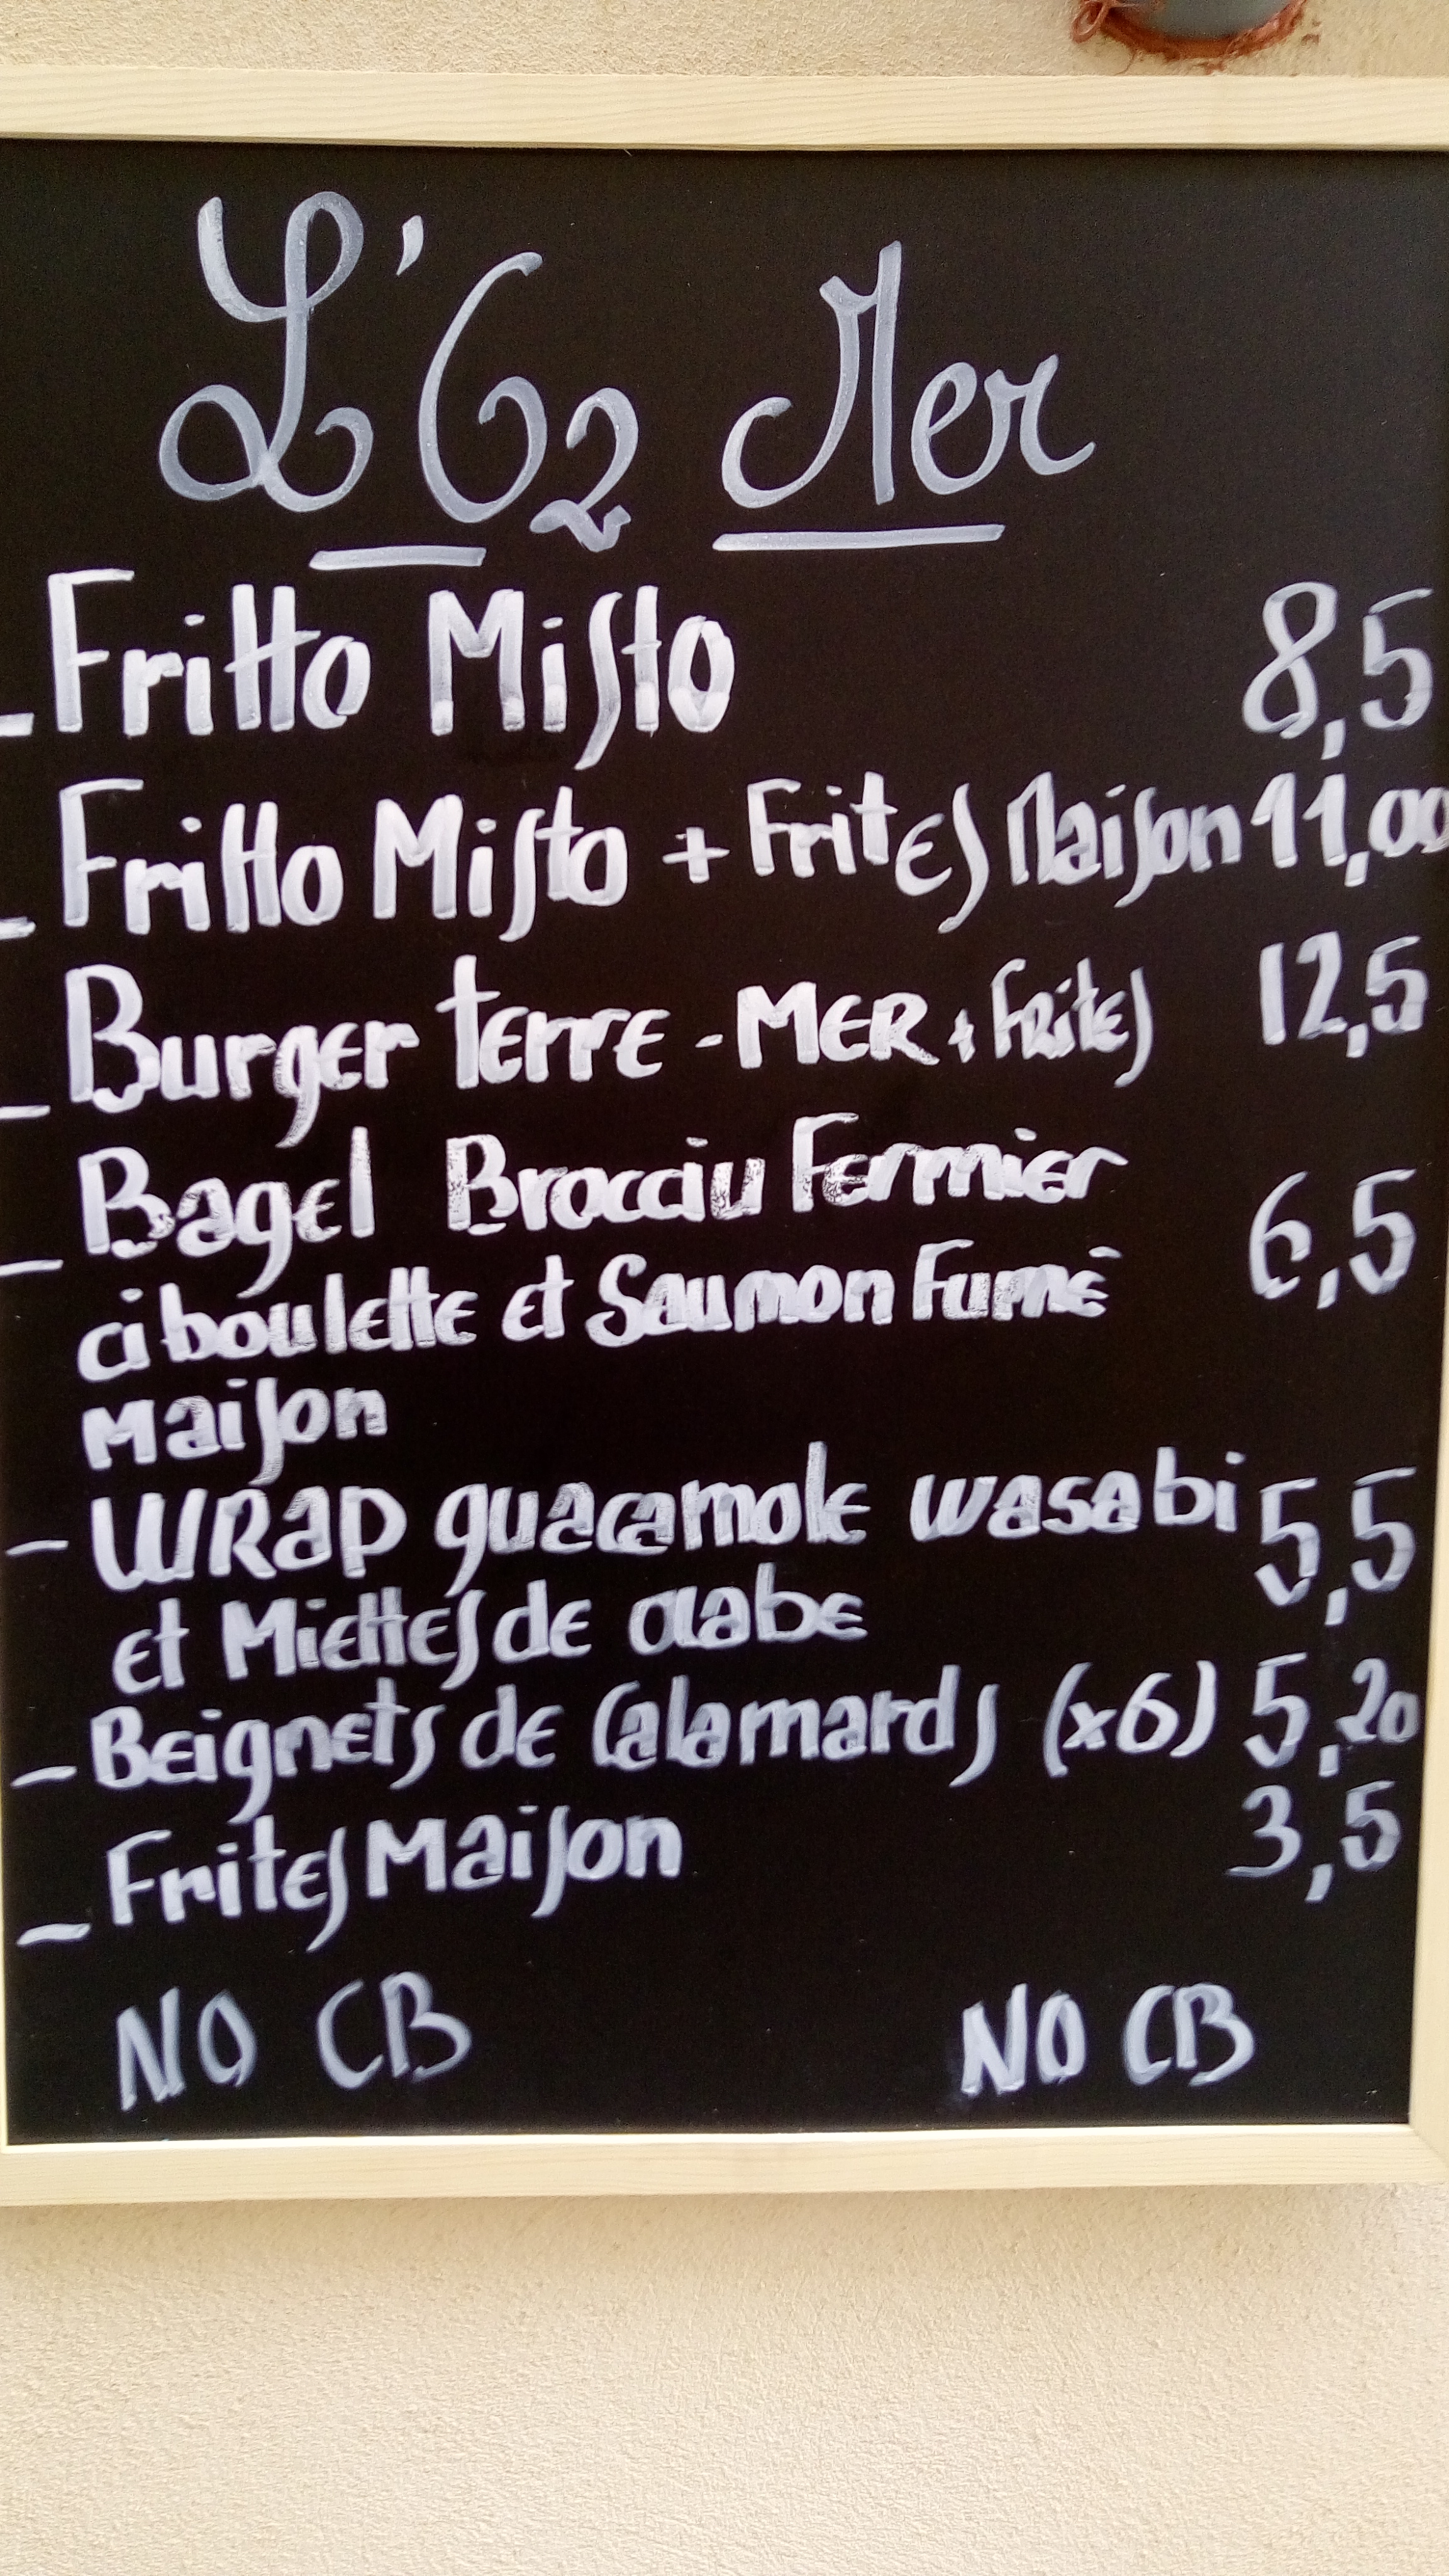 L'O2 Mer
- Fritto Misto 8,5
- Fritto Misto + Frites Maison 11,00
- Burger terre - MER + frites 12,5
- Bagel Brocciu Fermier 6,5
ciboulette et Saumon Fumé
Maison
- WRAP guacamole wasabi 5,5
et Miettes de crabe
- Beignets de Calamards (x6) 5,20
- Frites Maison 3,5
NO CB NO CB